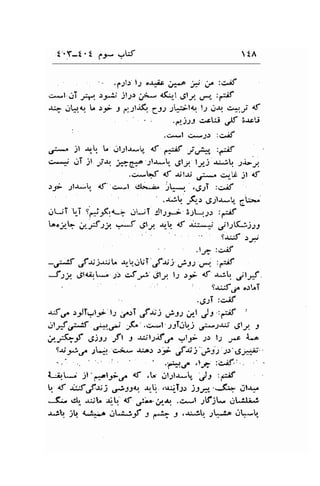 ۱۴۸ کتاب سوم ۴۰۴-۴۰۳
گفت: من نیز همین عقیده را دارم.
گفتم: پس برای اینکه سخن دراز نشود بهتر آن است
که تربیت بدن را به‌اختیار روح بگذاریم و خود ما به‌بیان چند
قاعدهٔ کلی قناعت ورزیم.
گفت: درست است.
گفتم: پیش‌تر گفتیم که پاسداران ما باید از مستی
برحذر باشند زیرا برای پاسدار هیچ‌چیز بدتر از آن نیست
که از غایت مستی نداند که کجاست.
گفت: آری، بسیار مضحک است که پاسدار خود
محتاج پاسداری دیگر باشد.
گفتم: دربارهٔ خوراک آنان چه‌بگوئیم؟ آیا آنان
ورزشکارانی نیستند که باید برای کسب بزرگترین جایزه‌ها
نبرد کنند؟
گفت: چرا.
گفتم: پس روش زندگی آنان‌باید‌مانند‌زندگی کشتی‌ـ
گیرانی باشد که خود را برای شرکت در مسابقه‌ای بزرگ
آماده می‌کنند؟
گفت: آری.
گفتم: ولی این روش زندگی آدمی را خواب‌آلود می‌کند
و برای تندرستی زیان‌آور است. مگر نمی‌بینی کشتی‌گیران
همهٔ عمر را در خواب می‌گذرانند و اگر روزی کوچکترین
تغییری در روش زندگی خود دهند سخت بیمار می‌شوند؟
گفت: چرا، می‌بینم.
گفتم: ولی پاسداران ما، که می‌خواهیم از مسابقهٔ
میدان جنگ پیروز درآیند، باید به‌روشی زندگی‌کنند که با
شغلشان سازگار است. بدین معنی که باید مانند یک سگ
پاسبان هشیار باشند، و چشم و گوششان همیشه باز باشد